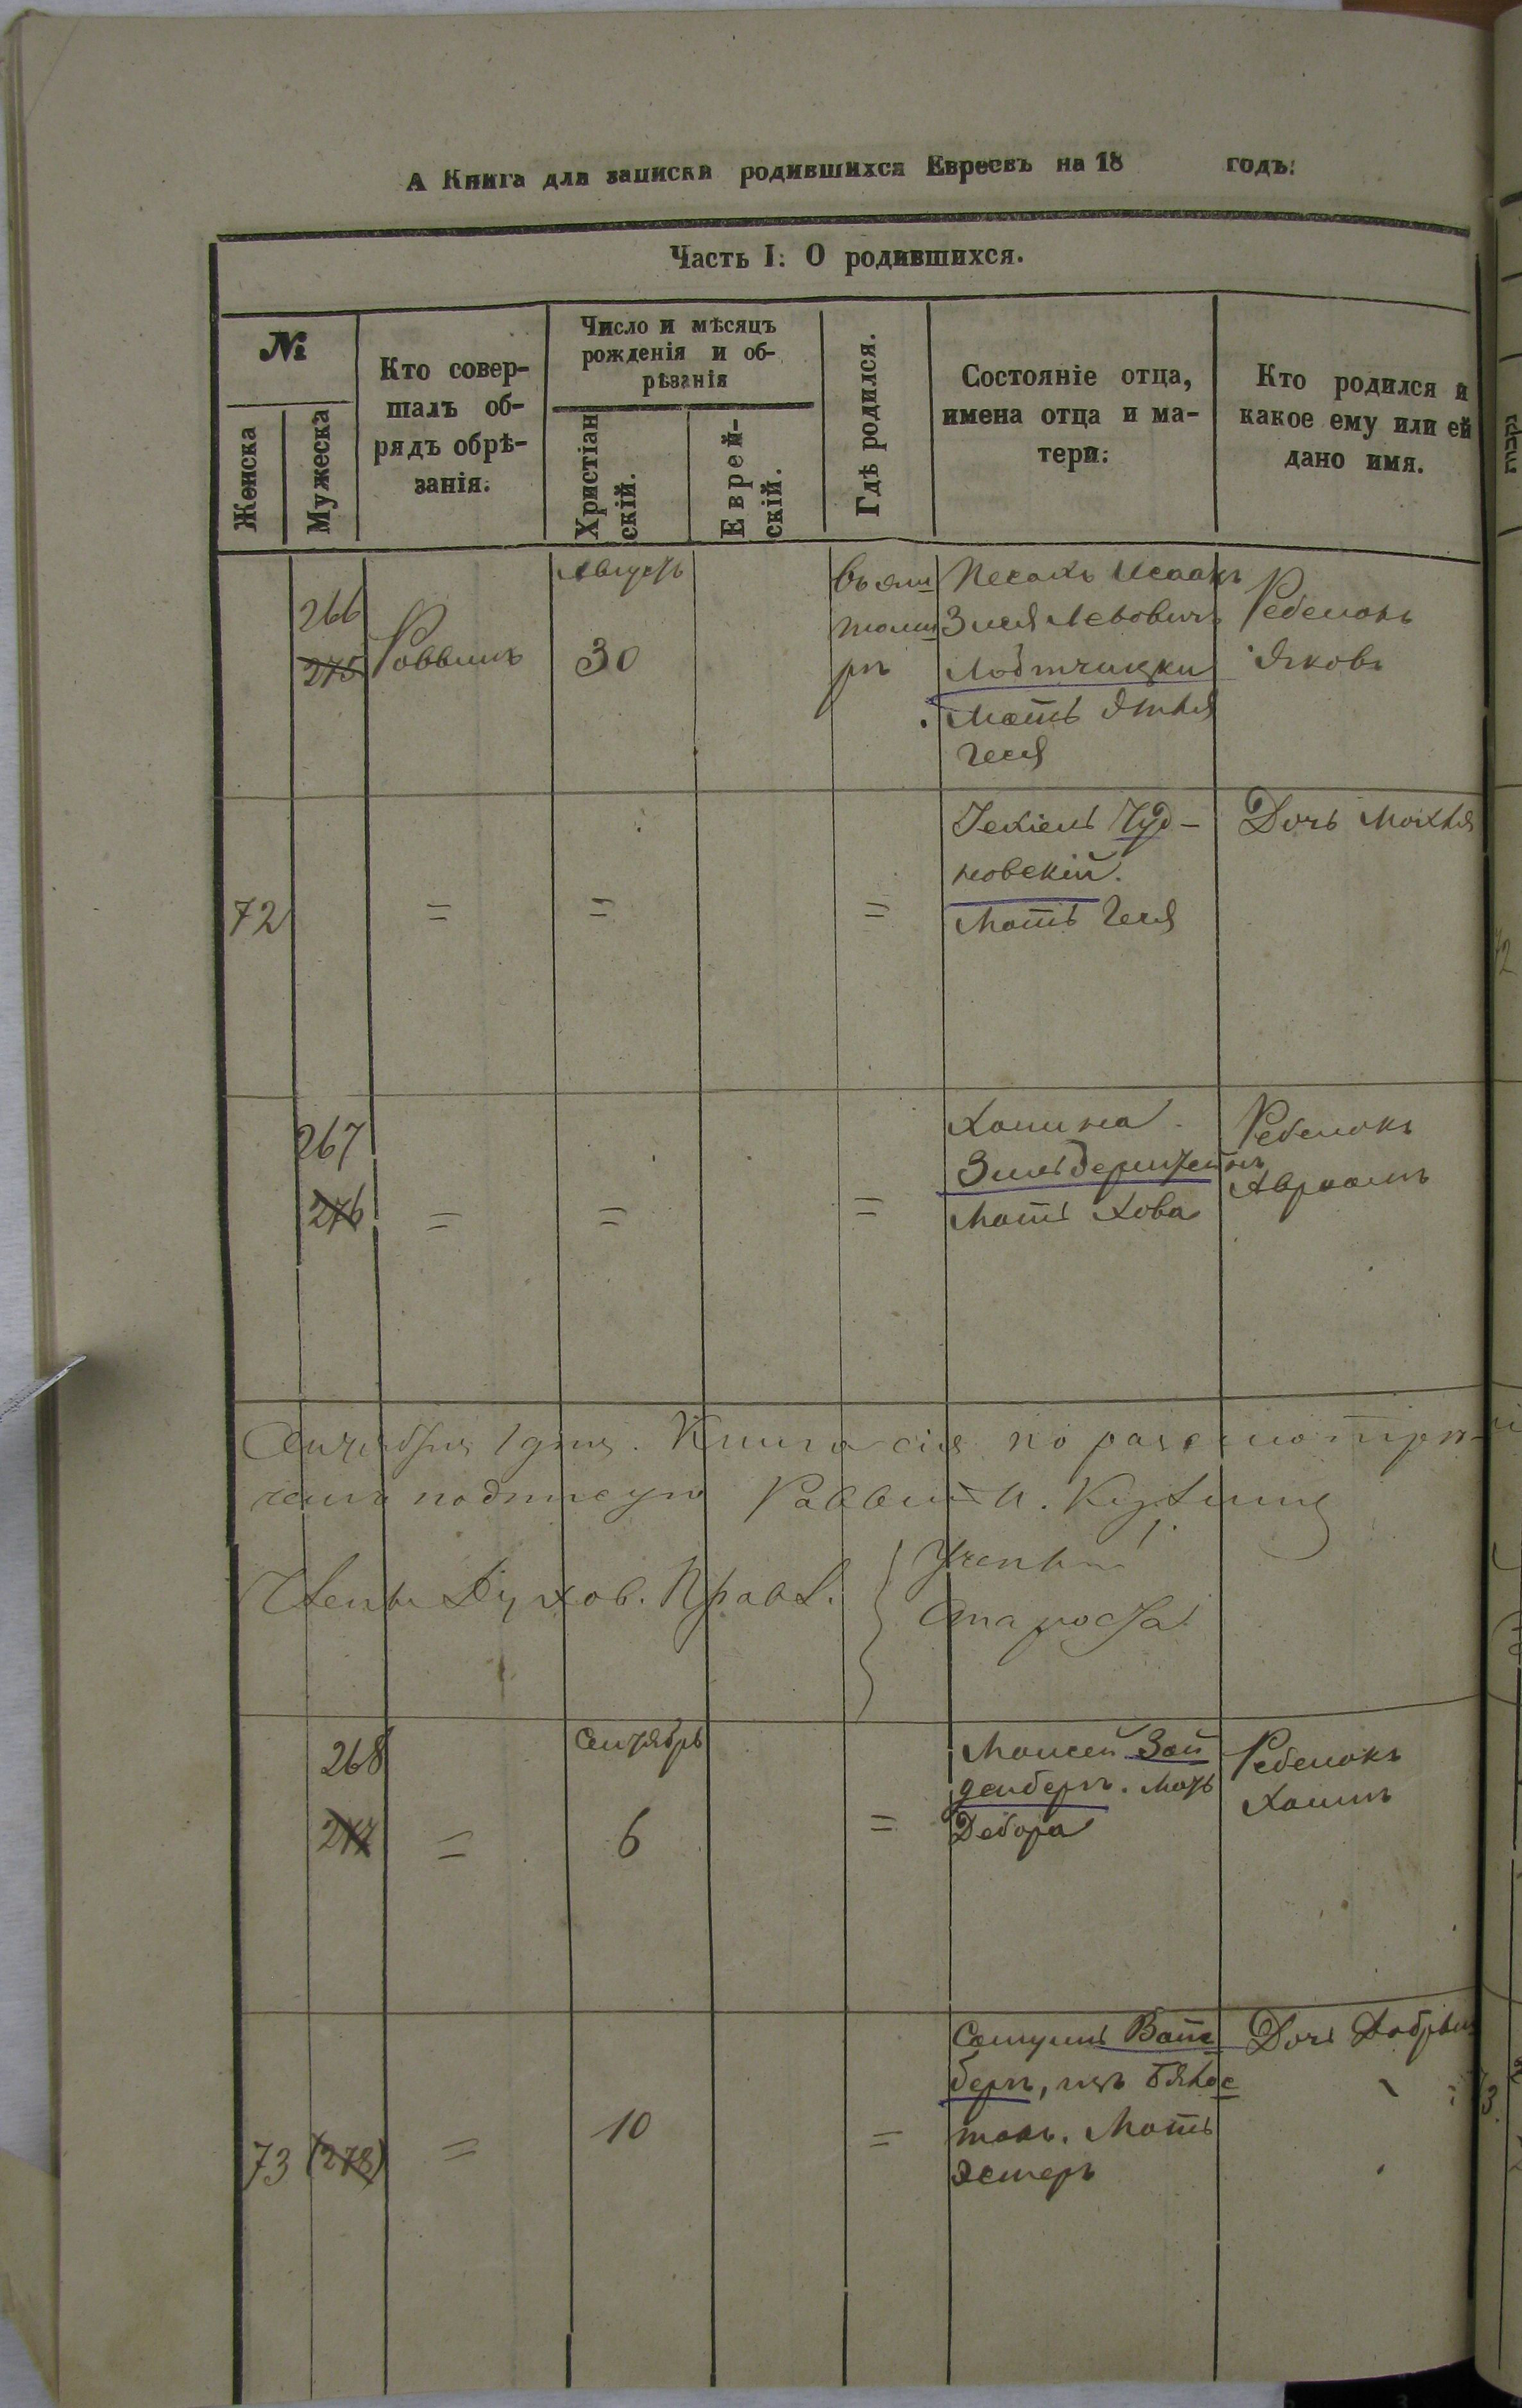 А Книга для записки родившихся Евреевъ на 18 годъ:
Часть I: О родившихся.
№
Женска
Мужеска
Кто совер-
шалъ об-
рядъ обрѣ-
занія.
Число и мѣсяцъ
рожденія и об-
рѣзанія
Христіан
скій.
Еврей-
скій.
Гдѣ родился.
Состояніе отца,
имена отца и ма-
тери:
Кто родился и
какое ему или ей
дано имя.
266
275
Раввинъ
Августъ
30
въ Жи
томи
рѣ
Песахъ Исаакъ
Зися Лейбовичъ
Мать
Геся
Ребенокъ
Яковъ
72
=
=
=
Іехіель Чуд-
новскій.
Мать Геся
Дочь Мохля
267
276
=
=
=
Хаина
Зильберштейнъ
Мать Хова
Ребенокъ
Авраамъ
Сентября 1 дня. Книга сія по разсмотрѣ-
нію подписую Раввинъ И.
Члены Духов. Правл.
Ученый
Староста
268
277
=
Сентябрь
6
=
Моисей Зай
денберъ. Мать
Дебора
Ребенокъ
Хаимъ
73
(278)
=
10
=
Самуилъ Вайс
беръ, изъ Бялос
токъ. Мать
Эстеръ
Дочь